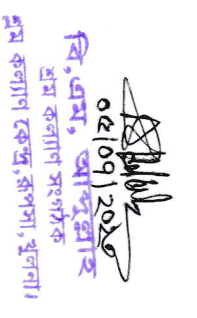 বি,এম, আব্দুল্লাহ
শ্রম কল্যাণ সংগঠক
শ্রম কল্যাণ কেন্দ্র, রূপসা, খুলনা।